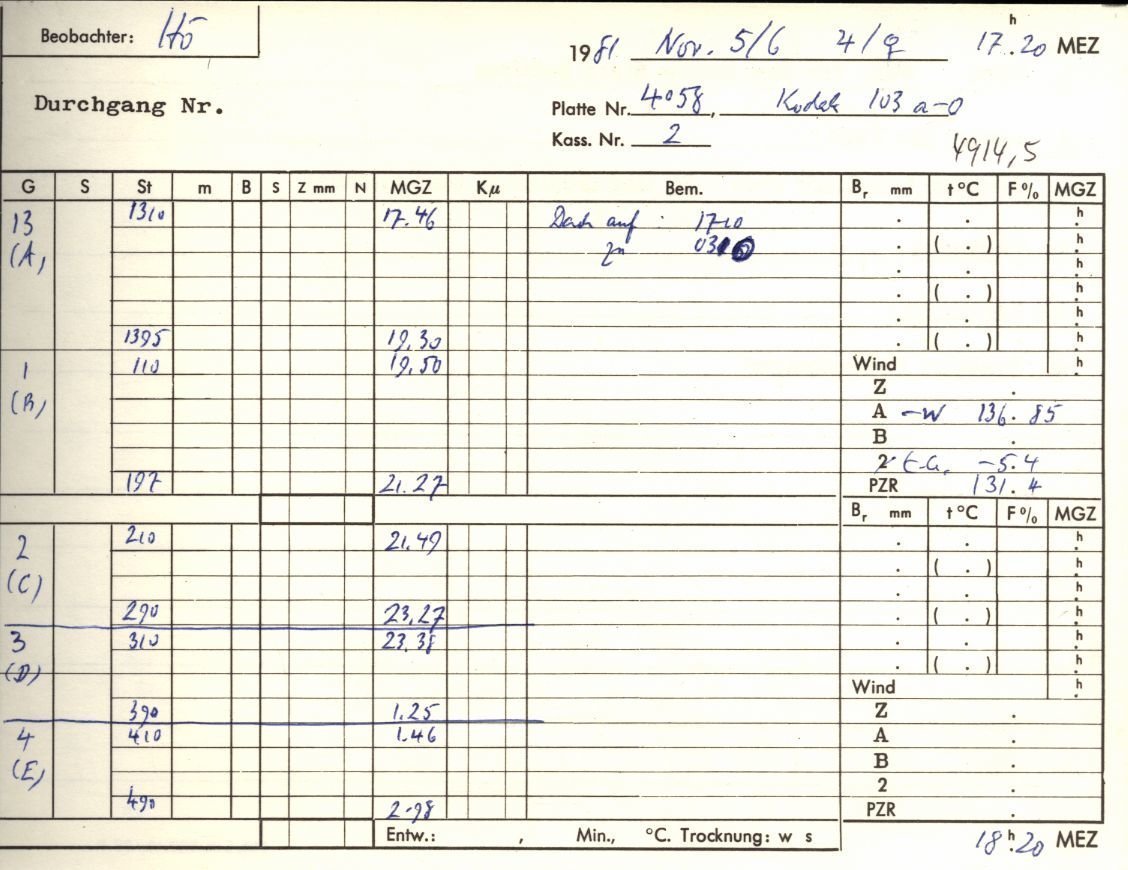 Beobachter: Hö
1981 Nov. 5/6 4/♀ 17.ʰ20 MEZ
Durchgang Nr.
Platte Nr. 4058, Kodak 103 a-0
Kass. Nr. 2
4914,5
G S St m B S Z mm N MGZ Kμ Bem. Bᵣ mm t °C F% MGZ
13 1310 17.46 Dach auf : 1710 . . h.
(A) zu 03 . ( . ) h.
. . h.
. ( . ) h.
. . h.
1395 19.30 . ( . ) h.
1 110 19.50 Wind h.
Z .
(B) A -W 136.85
B .
2 -5.4
197 21.27 PZR 131.4
Bᵣ mm t °C F% MGZ
2 210 21.49 . . h.
(C) . ( . ) h.
. . h.
290 23.27 . ( . ) h.
3 310 23.38 . . h.
(D) . ( . ) h.
Wind h.
390 1.25 Z .
4 410 1.46 A .
(E) B .
2 .
490 PZR .
Entw.: , Min., °C. Trocknung: w s
18ʰ.20 MEZ